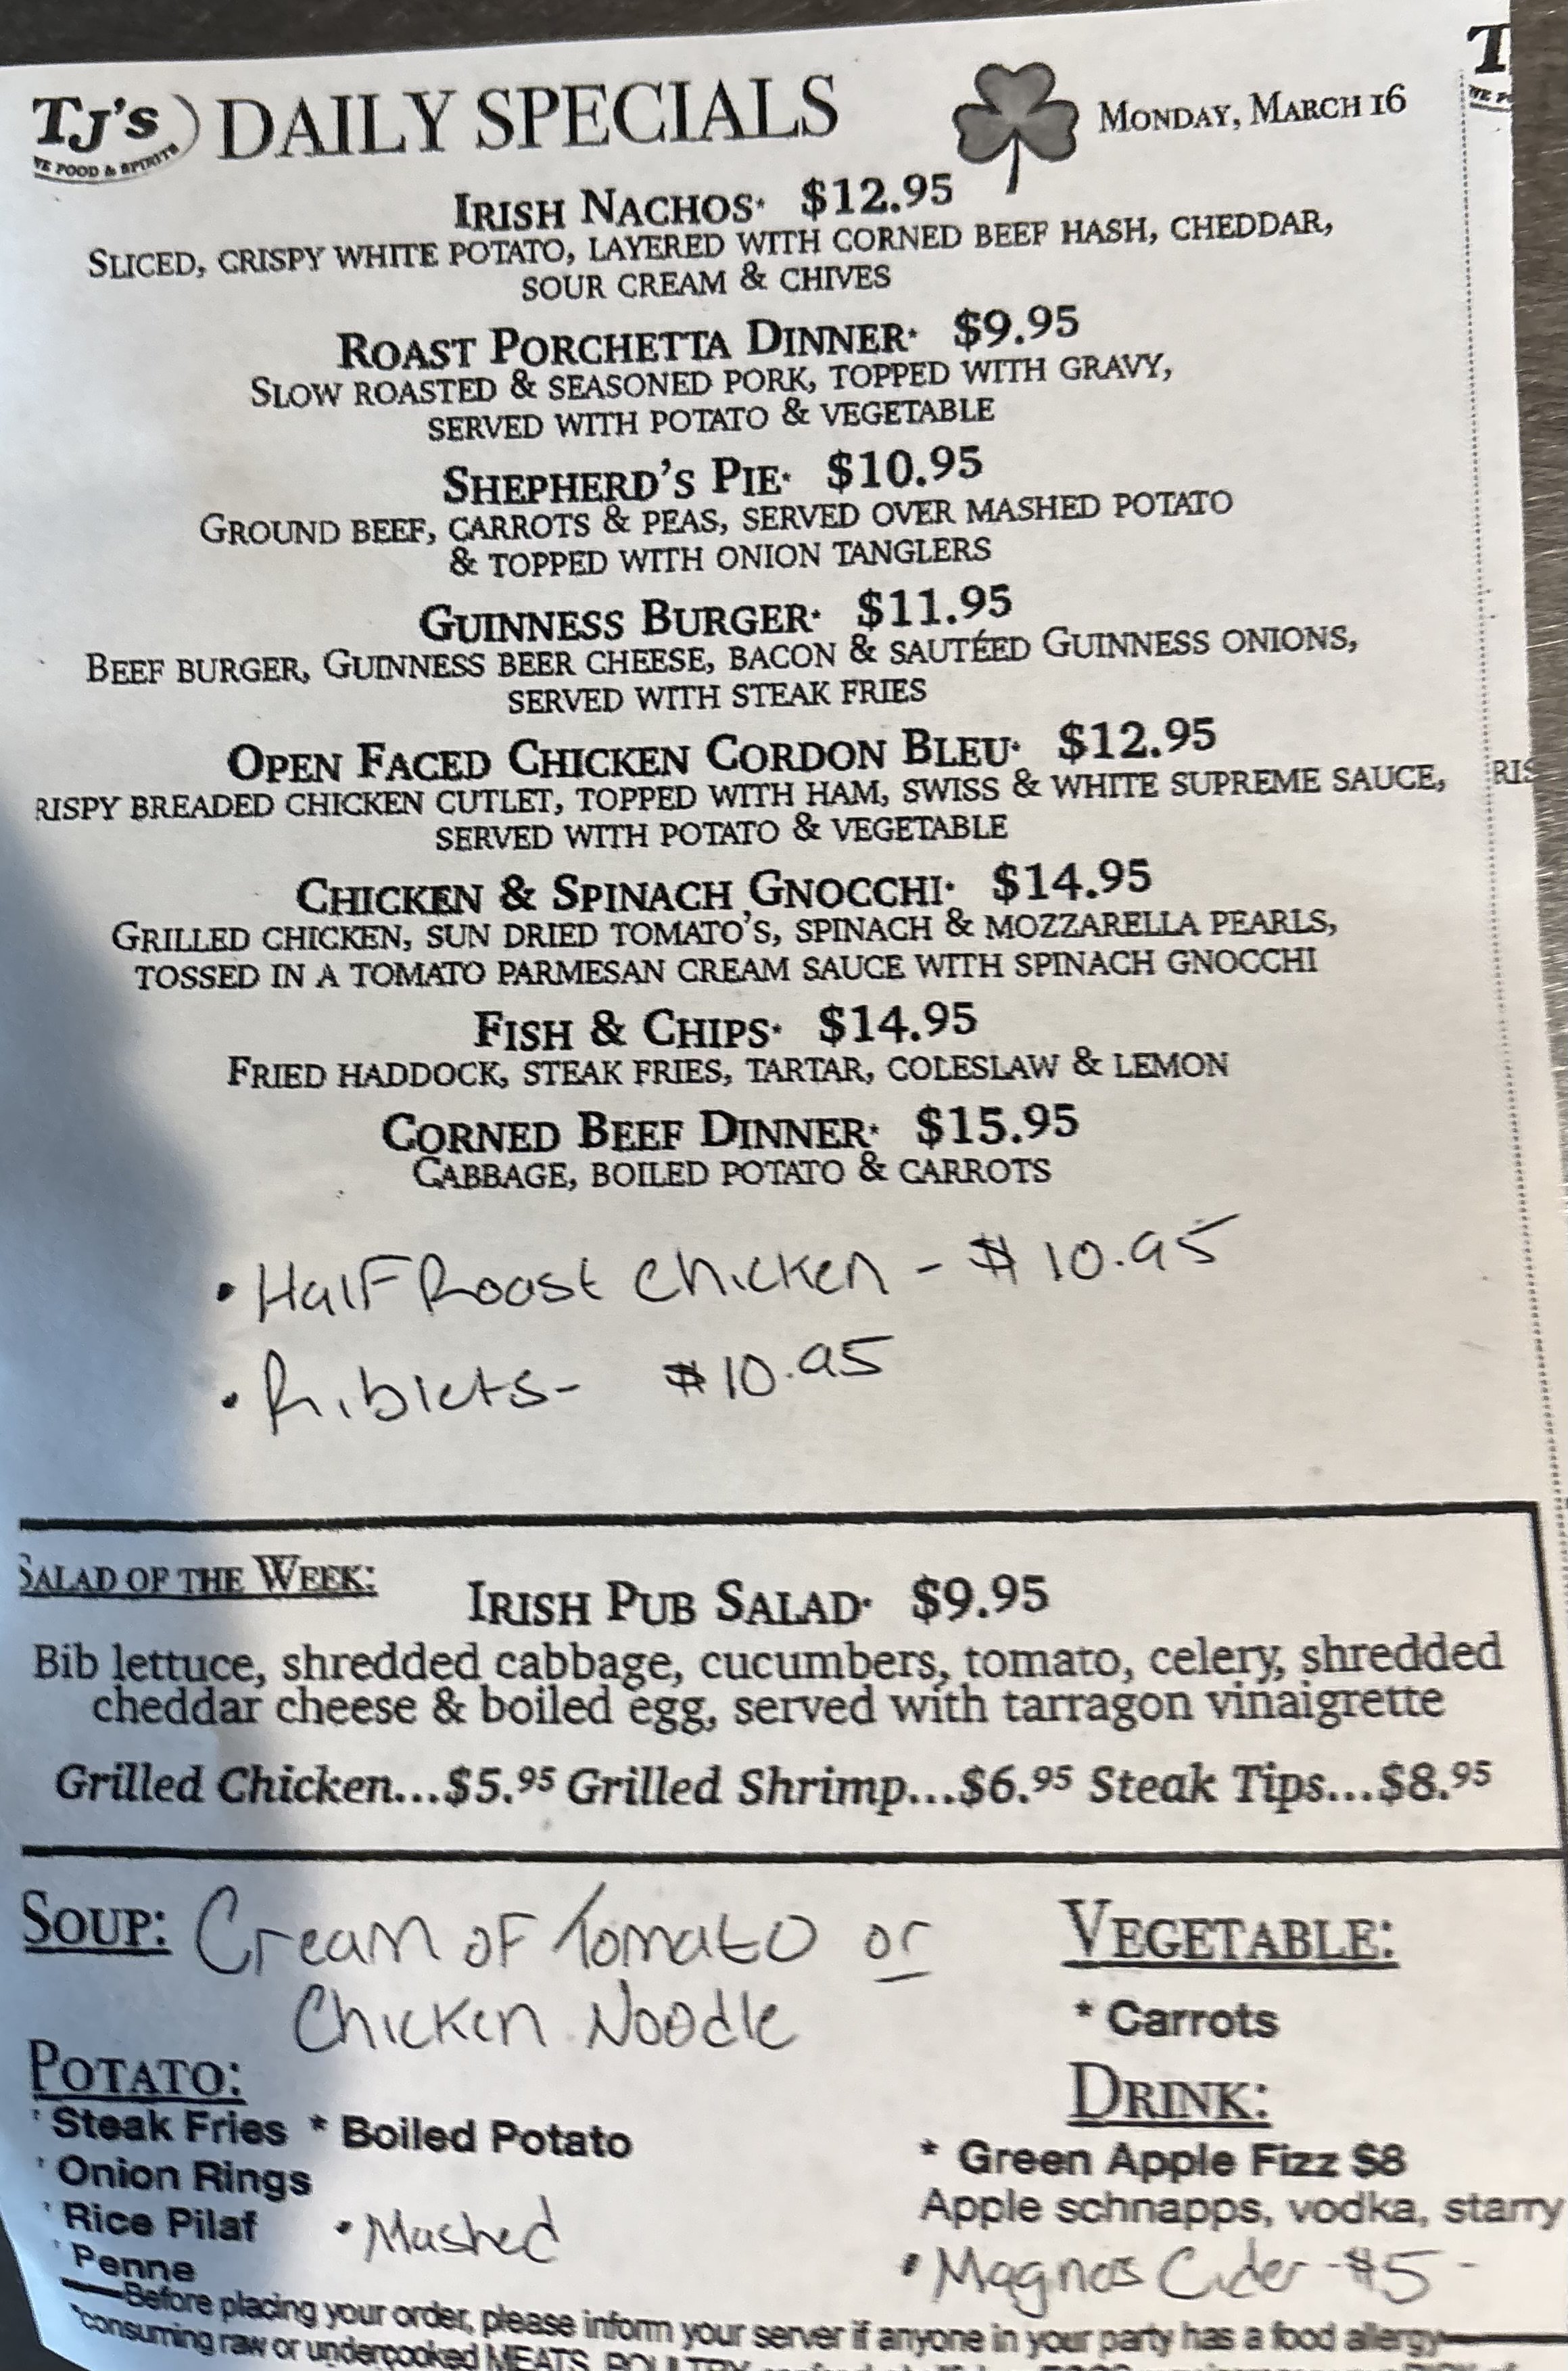 TJ's DAILY SPECIALS MONDAY, MARCH 16
FOOD & SPIRITS
IRISH NACHOS* $12.95
SLICED, CRISPY WHITE POTATO, LAYERED WITH CORNED BEEF HASH, CHEDDAR,
SOUR CREAM & CHIVES
ROAST PORCHETTA DINNER* $9.95
SLOW ROASTED & SEASONED PORK, TOPPED WITH GRAVY,
SERVED WITH POTATO & VEGETABLE
SHEPHERD'S PIE* $10.95
GROUND BEEF, CARROTS & PEAS, SERVED OVER MASHED POTATO
& TOPPED WITH ONION TANGLERS
GUINNESS BURGER* $11.95
BEEF BURGER, GUINNESS BEER CHEESE, BACON & SAUTÉED GUINNESS ONIONS,
SERVED WITH STEAK FRIES
OPEN FACED CHICKEN CORDON BLEU* $12.95
RISPY BREADED CHICKEN CUTLET, TOPPED WITH HAM, SWISS & WHITE SUPREME SAUCE,
SERVED WITH POTATO & VEGETABLE
CHICKEN & SPINACH GNOCCHI* $14.95
GRILLED CHICKEN, SUN DRIED TOMATO'S, SPINACH & MOZZARELLA PEARLS,
TOSSED IN A TOMATO PARMESAN CREAM SAUCE WITH SPINACH GNOCCHI
FISH & CHIPS* $14.95
FRIED HADDOCK, STEAK FRIES, TARTAR, COLESLAW & LEMON
CORNED BEEF DINNER* $15.95
CABBAGE, BOILED POTATO & CARROTS
• Half Roast Chicken - $10.95
• Riblets- $10.95
SALAD OF THE WEEK:
IRISH PUB SALAD* $9.95
Bib lettuce, shredded cabbage, cucumbers, tomato, celery, shredded
cheddar cheese & boiled egg, served with tarragon vinaigrette
Grilled Chicken...$5.95 Grilled Shrimp...$6.95 Steak Tips...$8.95
SOUP: Cream of Tomato or
Chicken Noodle
VEGETABLE:
* Carrots
POTATO:
* Steak Fries * Boiled Potato
* Onion Rings
* Rice Pilaf • Mashed
* Penne
DRINK:
* Green Apple Fizz $8
Apple schnapps, vodka, starry
• Magners Cider - $5 -
Before placing your order, please inform your server if anyone in your party has a food allergy
*consuming raw or undercooked MEATS, POULTRY